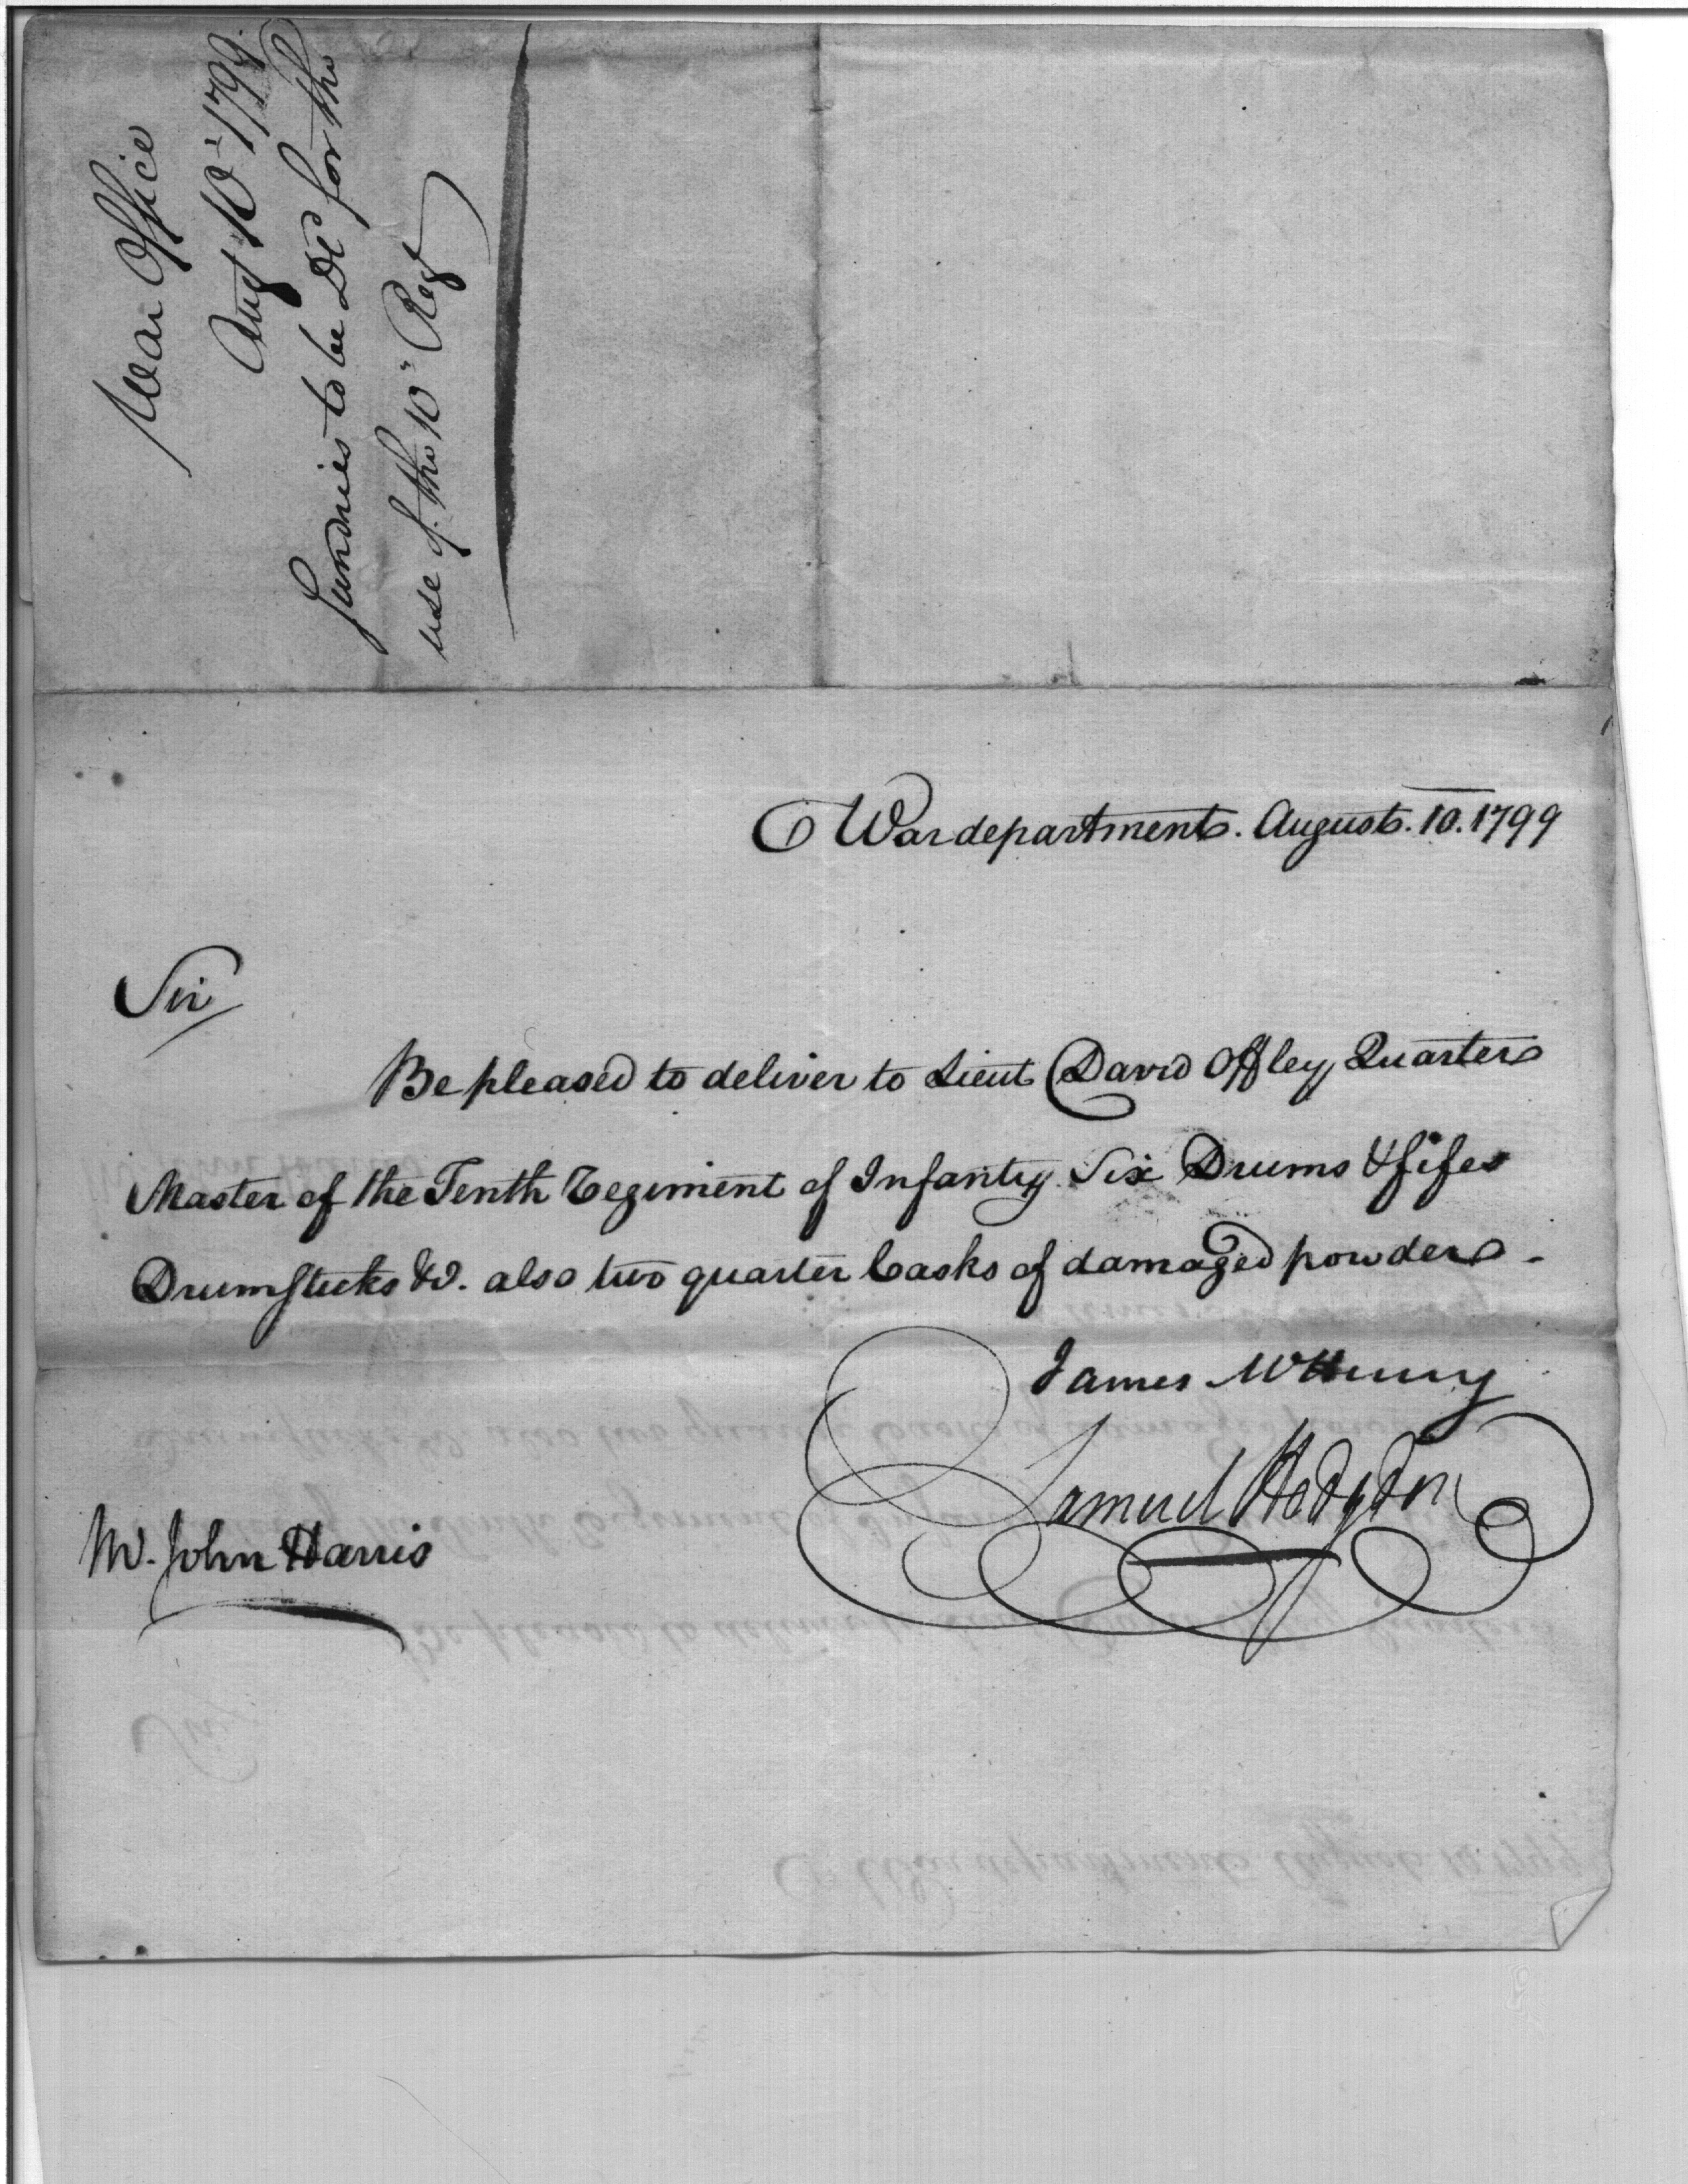 War Office
Augt 10 - 1799.
Sundries to be Dd for the
use of the 10" Regt
War department. August. 10. 1799
Sir
Be pleased to deliver to Lieut David Offley Quarter
Master of the Tenth Regiment of Infantry Six Drums & fifes
Drumsticks &c. also two quarter Casks of damaged powder -
James McHenry
Samuel Hodgdon
Mr. John Harris